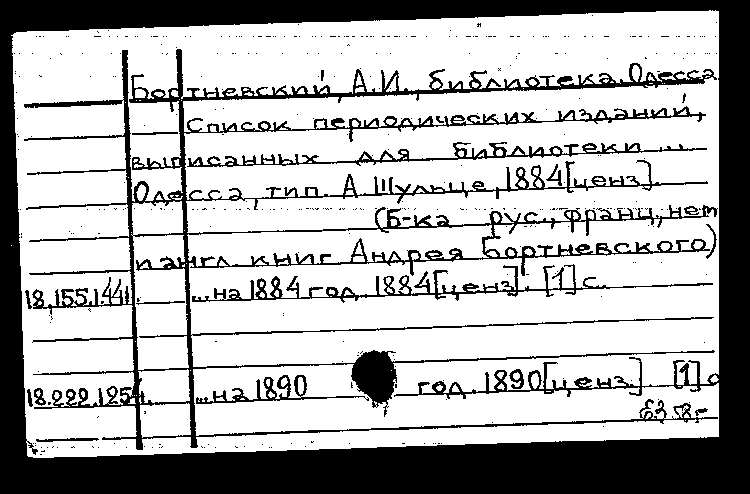 Бортневский, А.И., библиотека. Одесса
Список периодических изданий,
выписанных для библиотеки ...
Одесса, тип. А. Шульце, 1884 [ценз].
(Б-ка рус., франц., нем
и англ. книг Андрея Бортневского)
18.155.1.441. ...на 1884 год. 1884 [ценз]. [1] с.
18.222.1.254. ...на 1890 год. 1890 [ценз.] [1] с